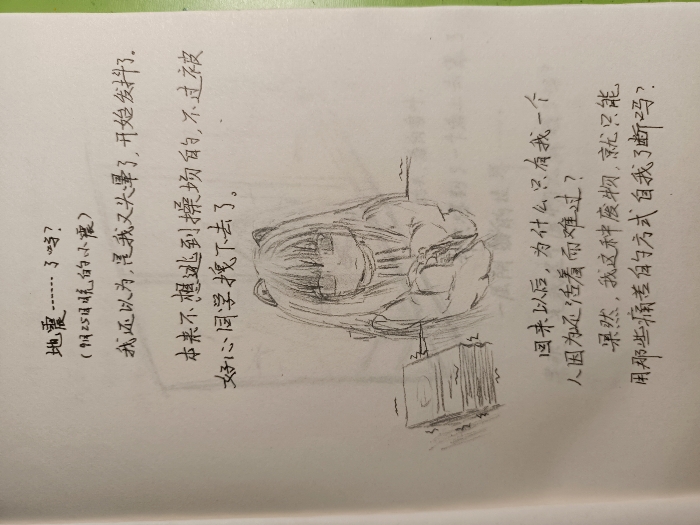 地震……了吗？
（9月25日晚的小震）
我还以为，是我又头晕了，开始发抖了。
本来不想逃到操场的，不过被
好心同学拽下去了。
回来以后，为什么只有我一个
人因为还活着而难过？
果然，我这种废物，就只能
用那些痛苦的方式自我了断吗？